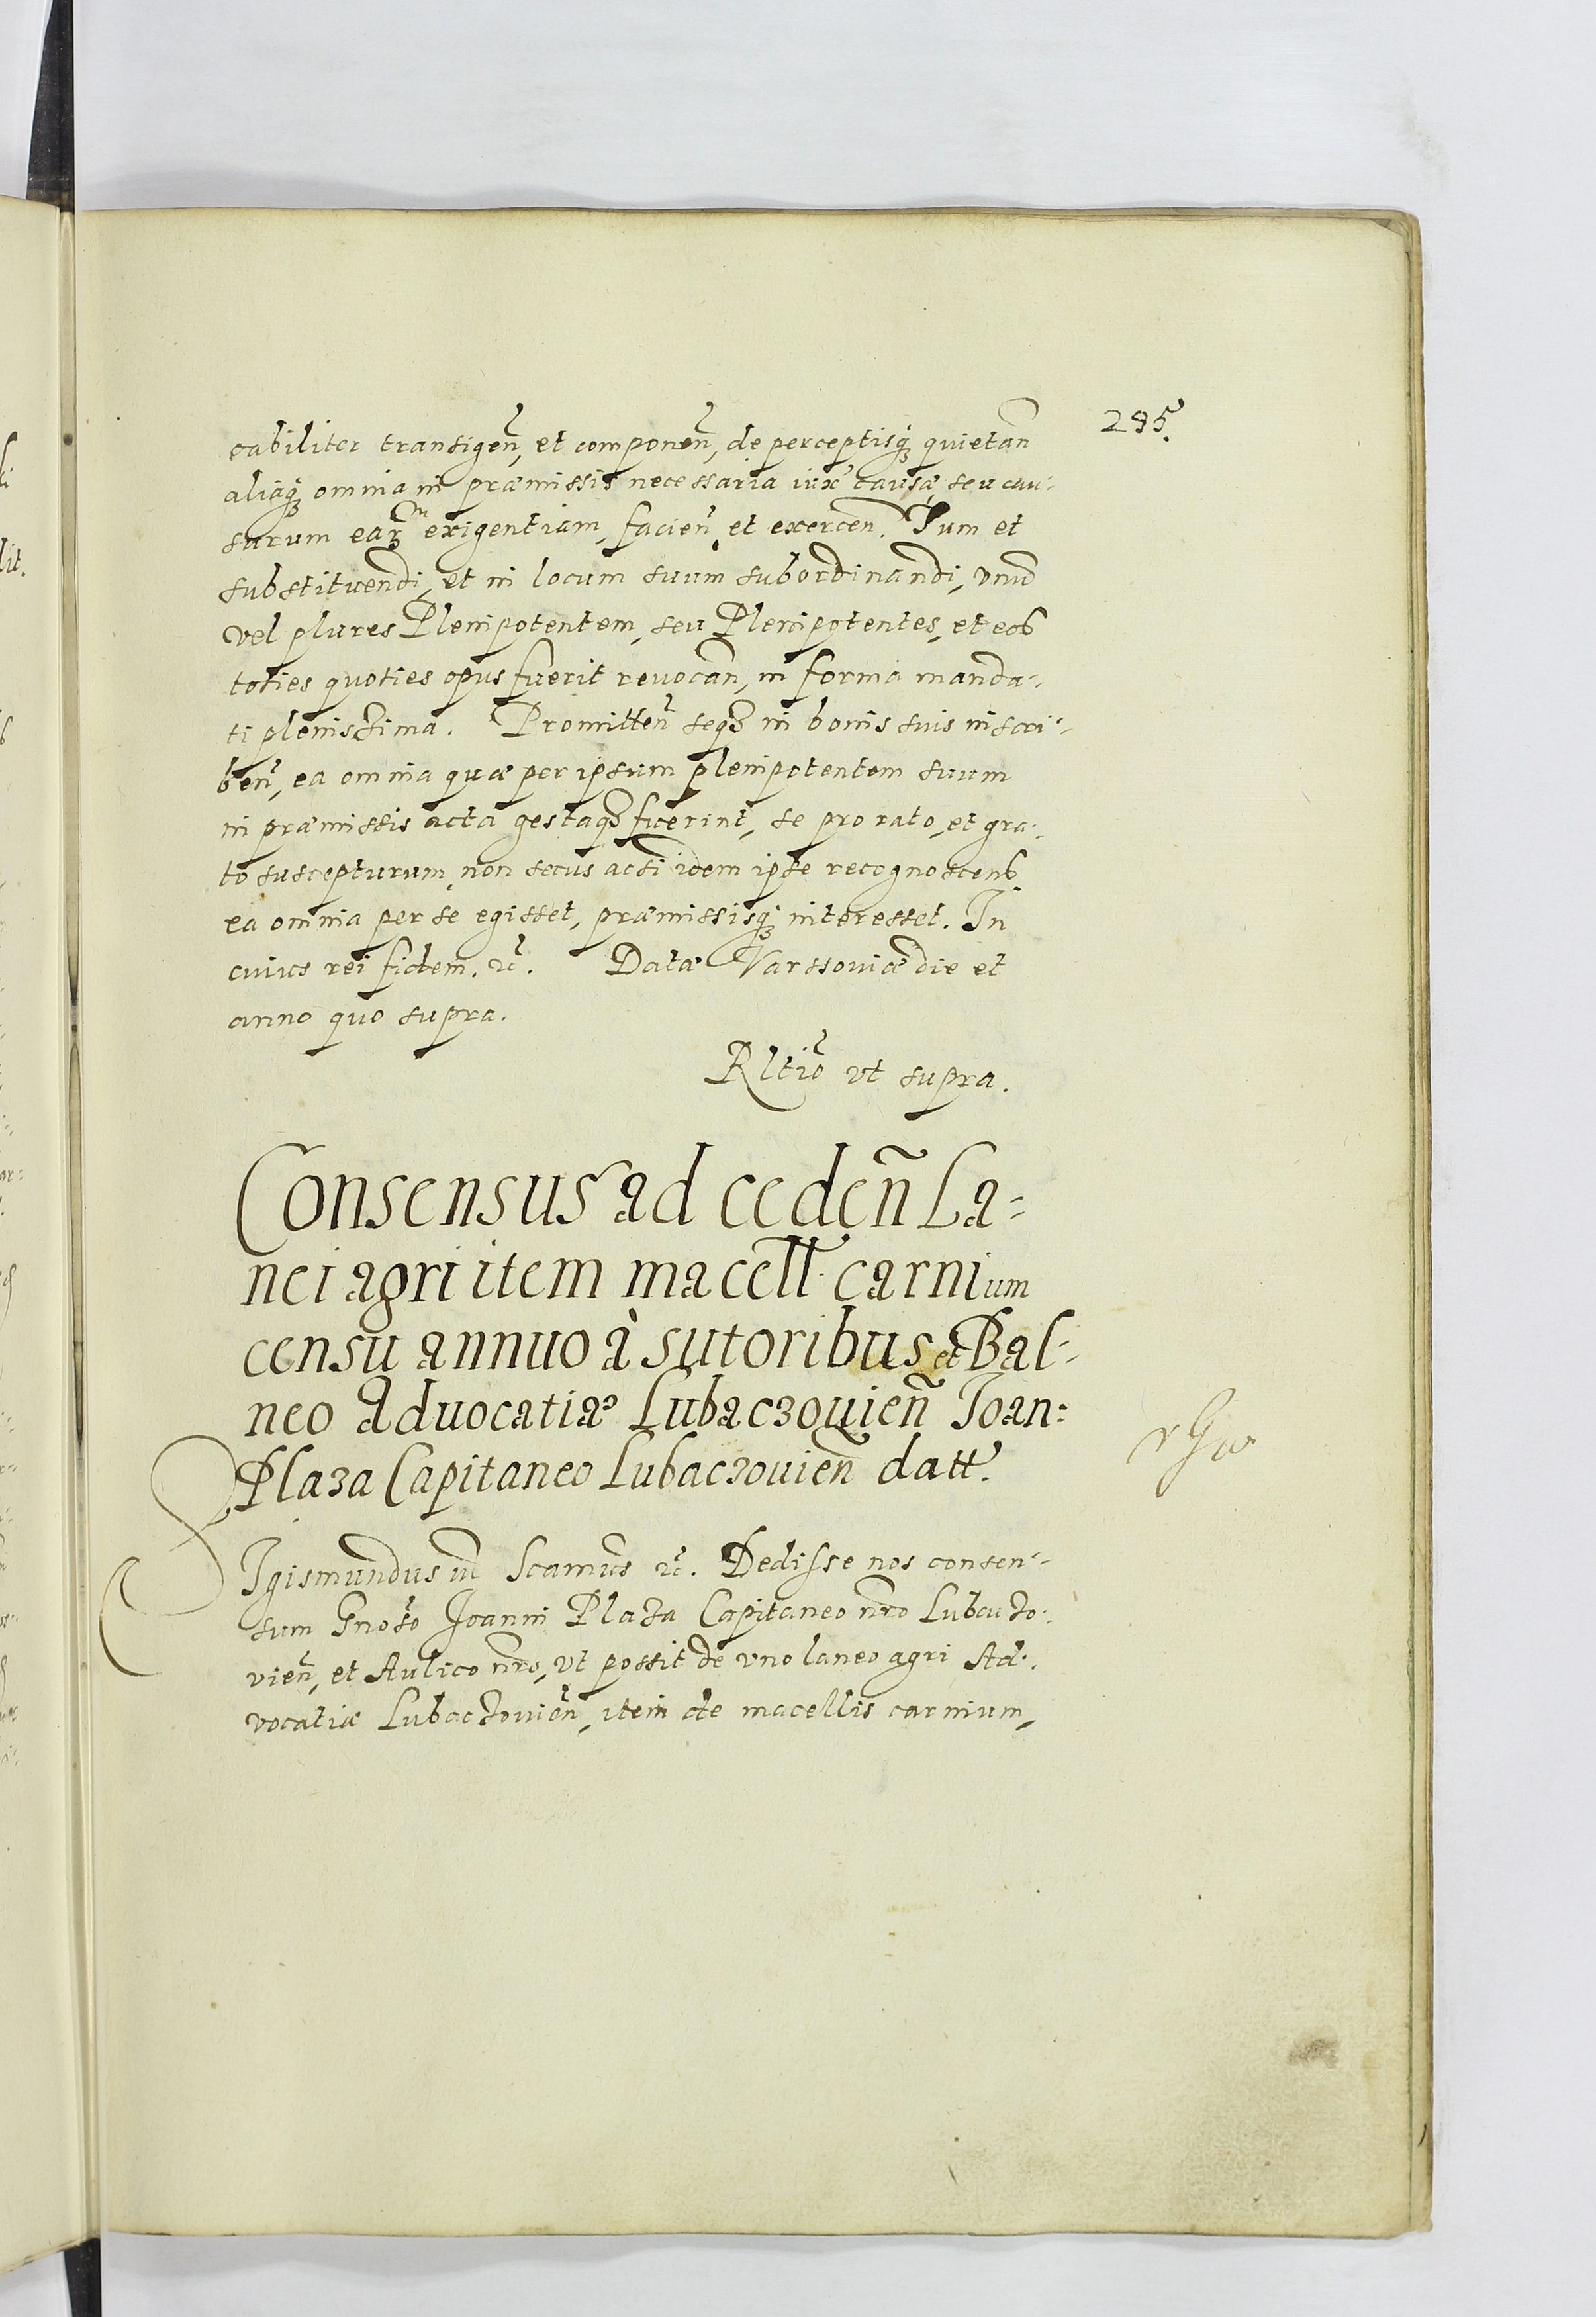 295.
cabiliter transigen̄, et componen̄, de perceptisq́ꝫ quietan̄
aliaq́ꝫ omnia in præmissis necessaria iux̄ causæ, seu cau-
sarum earꝫ exigentiam, facien̄, et exercen̄. Tum et
substituendi, et in locum suum subordinandi, vnū
vel plures Plenipotentem, seu Plenipotentes, et eos
toties quoties opus fuerit reuocan̄, in forma manda-
ti plenissima. Promitten̄ seqꝫ in bonis suis inscri-
ben̄, ea omnia quæ per ipsum plenipotentem suum
in præmissis acta gestaqꝫ fuerint, se pro rato, et gra-
to suscepturum, non secus acsi idem ipse recognoscens
ea omnia per se egisset, præmissisq́ꝫ interesset. In
cuius rei fidem. ꝛc̄. Datæ Varssouiæ die et
anno quo supra.
Rltiō vt supra.
Consensus ad ceden̄ La-
nei agri item macell. carnium
censu annuo à sutoribus et Bal-
neo Aduocatiæ Lubaczouien̄ Ioan:
Plaza Capitaneo Lubaczouien̄ datt.
SIgismundus III Scamus ꝛc̄. Dedisse nos consen-
sum Gnoso Joanni Plaza Capitaneo nrō Lubaczo-
vien̄, et Aulico nrō, vt possit de vno laneo agri Ad-
vocatiæ Lubaczouien̄, item de macellis carnium,